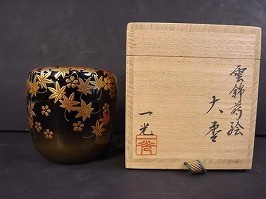 雲錦蒔絵
大棗
一光